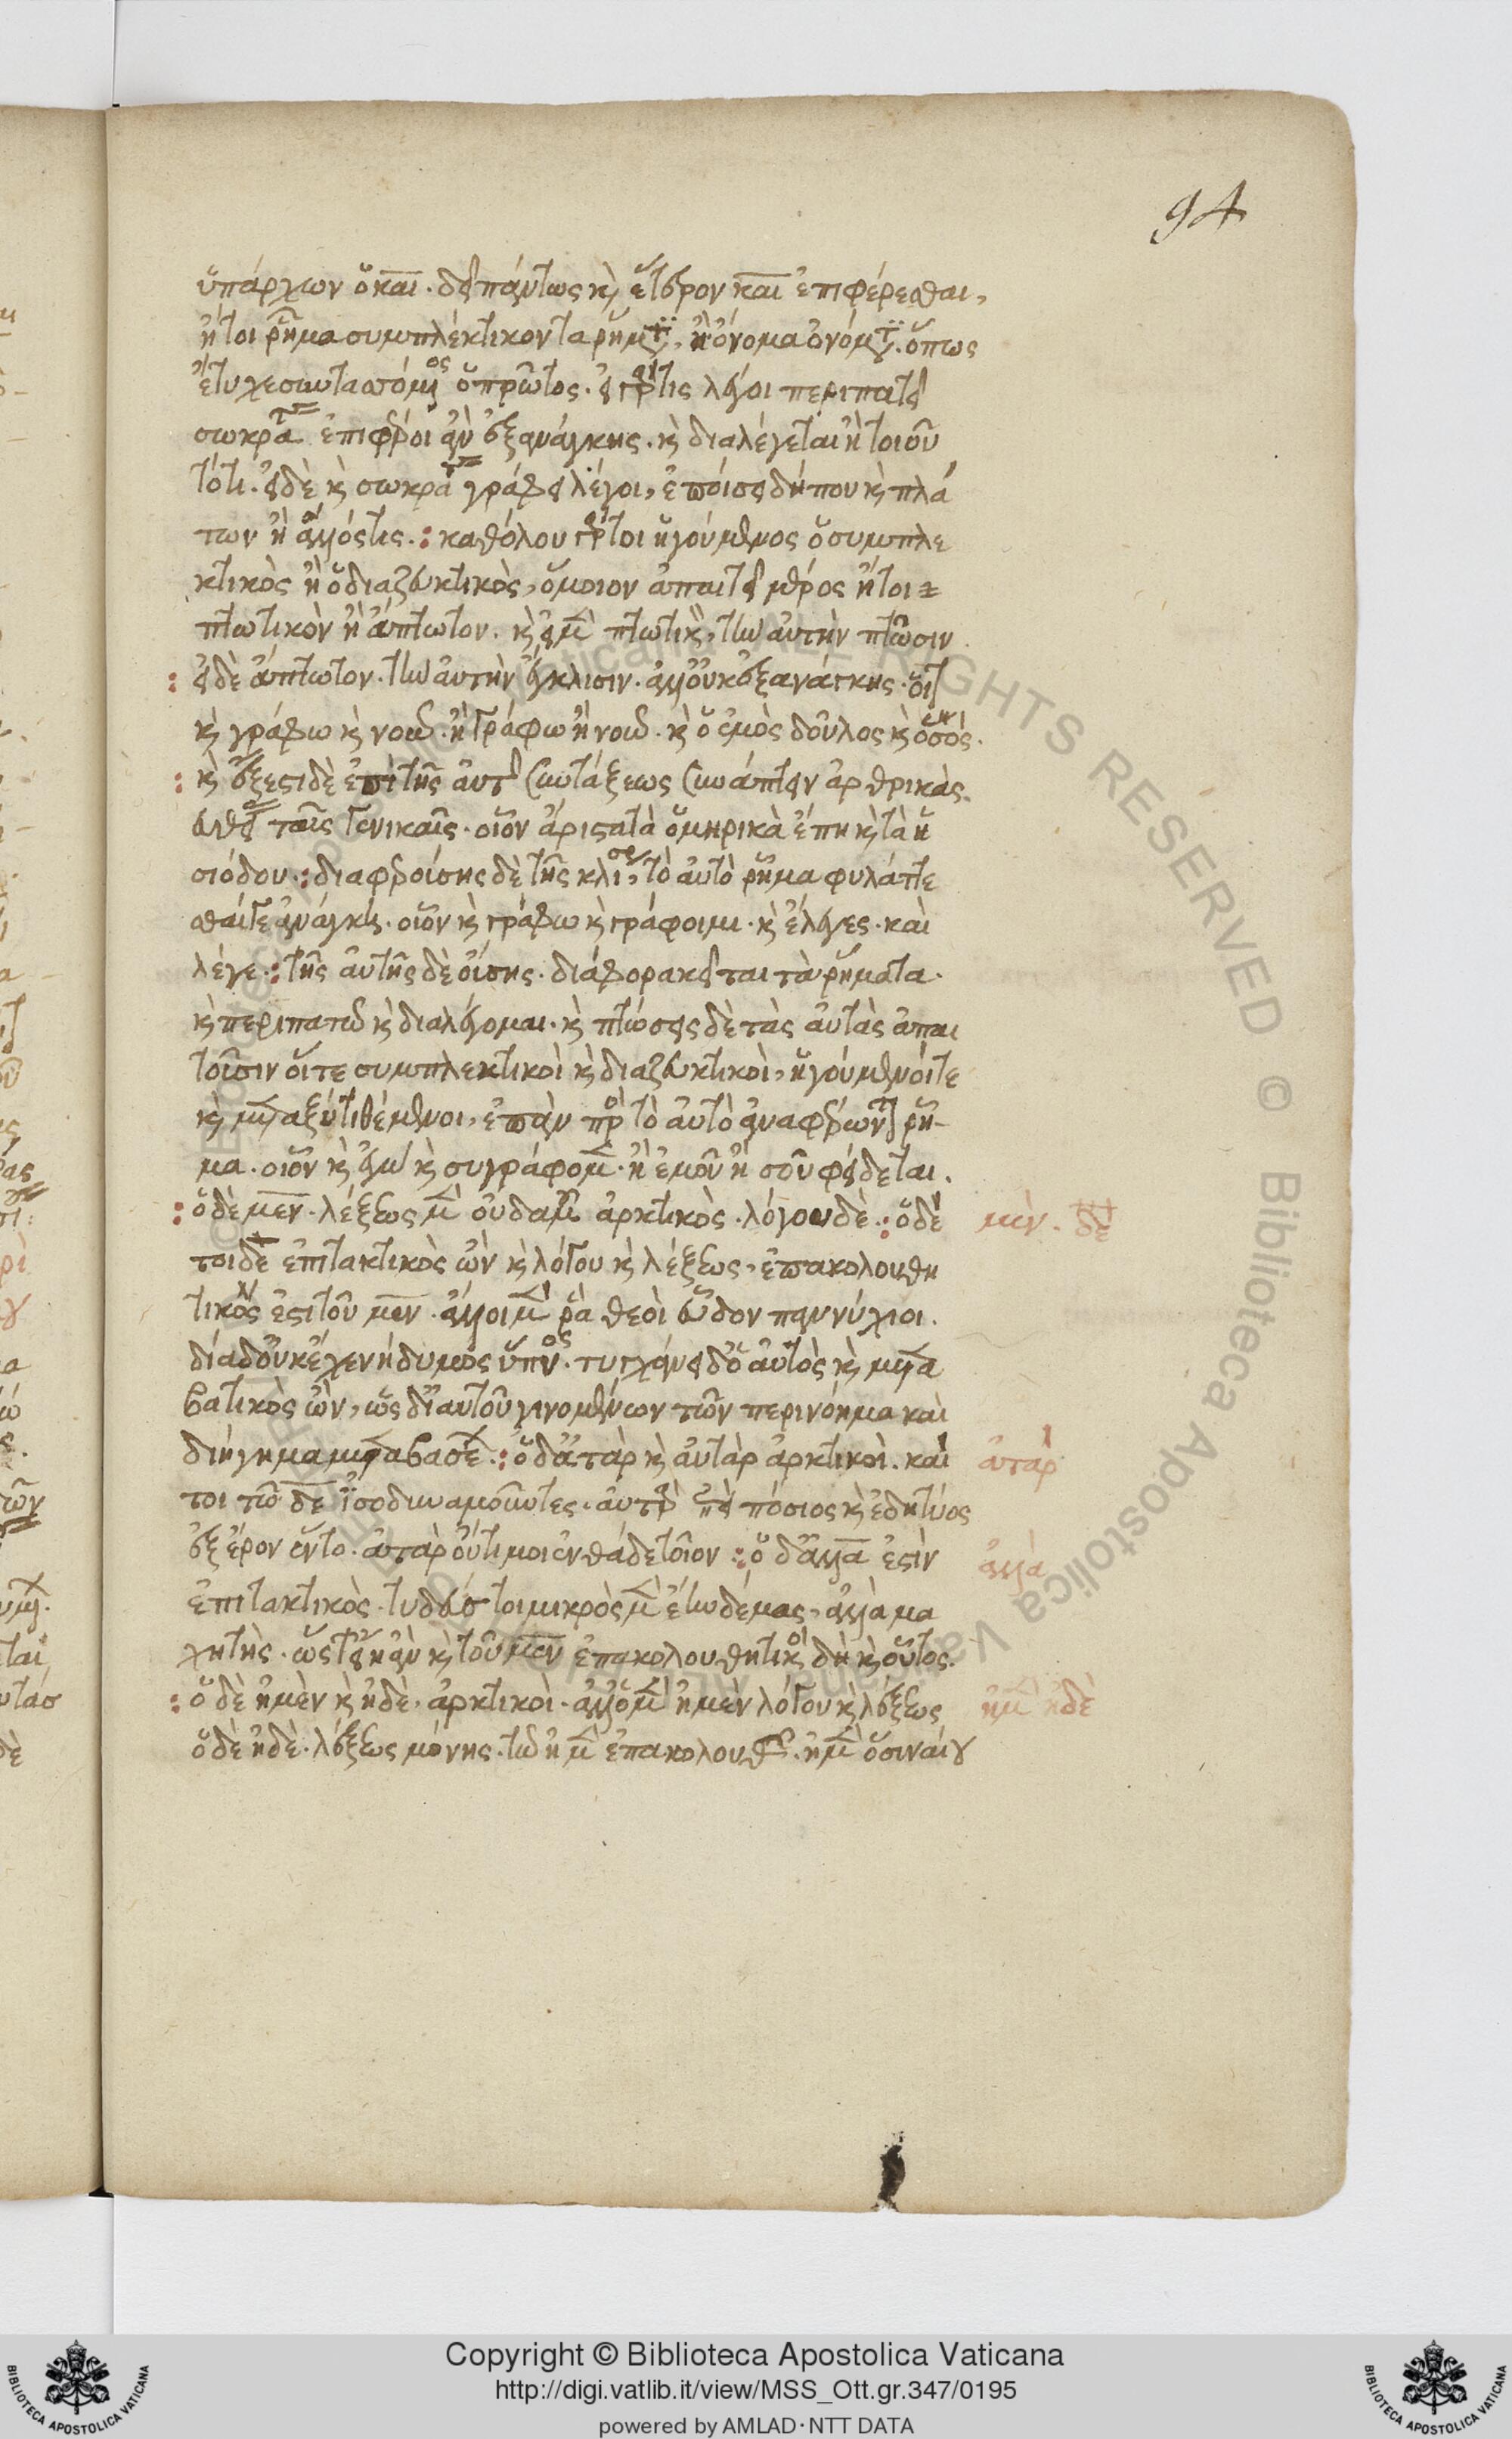 94
ὑπάρχων ὁ καὶ. δεῖ πάντως κὶ ἕτερον καὶ ἐπιφέρεσθαι,
ἤτοι ῥῆμα συμπλέκτικον τα ῥήματι, ἢ ὄνομα ὀνόματι. ὅπως
ἔτυχε συνταττόμενος ὁ πρῶτος. εἰ γάρ τις λέγοι περιπατεῖ
σωκράτης ἐπιφέροι ἂν ἐξανάγκης. κὶ διαλέγεται ἢ τοιοῦ
τότι. εἰ δὲ κὶ σωκράτης γράφει λέγοι, ἐποίσει δήπου κὶ πλά
των ἢ ἄλλός τις.: καθόλου γάρ τοι ἡγούμενος ὁ συμπλε
κτικὸς ἢ ὁ διαζευκτικὸς, ὅμοιον ἀπαιτεῖ μέρος ἤτοι
πτωτικὸν ἢ ἄπτωτον. κὶ εἰ μὲν πτωτικὸν, τὴν ἀυτὴν πτῶσιν
: εἰ δὲ ἄπτωτον. τὴν ἀυτὴν ἔγκλισιν. ἀλλ οὐκ ἐξανάγκης. ὅτι
κὶ γράφω κὶ νοῶ. ἢ γράφω ἢ νοῶ. κὶ ὁ ἐμὸς δοῦλος κὶ ὁ σός.
: κὶ ἔξεστι δὲ ἐπὶ τῆς ἀυτῆς συντάξεως συνάπτειν ἀρθρικὰς
εὐθείας ταῖς γενικαῖς. οἷον ἄριστα τὰ ὁμηρικὰ ἔπη κὶ τὰ ἡ
σιόδου.: διαφεροίσης δὲ τῆς κλίσεως, τὸ ἀυτὸ ῥῆμα φυλάττε
σθαίγε ἀνάγκη. οἷον κὶ γράφω κὶ γράφοιμι. κὶ ἔλεγες. καὶ
λέγε.: τῆς ἀυτῆς δὲ οὔσης. διάφορα κεῖται τὰ ῥήματα.
κὶ περιπατῶ κὶ διαλέγομαι. κὶ πτώσεις δὲ τὰς ἀυτὰς ἀπαι
τοῦσιν οἵτε συμπλεκτικοὶ κὶ διαζευκτικοὶ, ἡγούμενοίτε
κὶ μεταξὺ τιθέμενοι, ἐπὰν πρὸς τὸ ἀυτὸ ἀναφέρωνται ῥῆ-
μα. οἷον κὶ ἐμοῦ κὶ συγράφομεν. ἢ ἐμοῦ ἢ σοῦ φείδεται.
: ὁ δὲ μεν. λέξεως μὲν οὐδαμῶς ἀρκτικὸς. λόγου δὲ.: ὁ δέ
τοι δὲ ἐπιτακτικὸς ὢν κὶ λόγου κὶ λέξεως, ἐπακολουθη
τικός ἐστι τοῦ μεν. ἄλλοι μέν ῥα θεοὶ εὗδον παννύχιοι.
δία δ οὐκ ἔχε νήδυμος ὕπνος. τυγχάνει δ ὁ ἀυτὸς κὶ μετα
βατικὸς ὢν, ὡς δι αυτοῦ γινομένων τῶν περινόημα καὶ
διήγημα μεταβάσεων.: ὁ δ ἀτὰρ κὶ ἀυτὰρ ἀρκτικοὶ. καί
τοι τῷ δὲ ἰσοδυναμοῦντες. ἀυτὰρ ἐπεὶ πόσιος κὶ ἐδητύος
ἐξ ἔρον ἕντο. ἀτὰρ οὔτι μοι ἐνθάδε τοῖον.: ὁ δ ἀλλὰ ἐστὶν
ἐπιτακτικὸς. τυδεύς τοι μικρὸς μὲν ἔην δέμας, ἀλλὰ μα
χητὴς. ὥστ εἴη ἂν κὶ τοῦ μεν ἐπακολουθητικὸς δὴ κὶ οὗτος.
: ὁ δὲ ἠμὲν κὶ ἠδὲ, ἀρκτικοὶ. ἀλλ ὁ μὲν ἠμὲν λόγου κὶ λέξεως
ὁ δὲ ἠδὲ. λέξεως μόνης. τῷ ἠμὲν ἐπακολουθῶν. ἠμὲν ὅσιν αἴγ
μὲν. δὲ
ἀτάρ
ἀλλὰ
ἠμὲν ἠδὲ
Copyright © Biblioteca Apostolica Vaticana
http://digi.vatlib.it/view/MSS_Ott.gr.347/0195
powered by AMLAD·NTT DATA